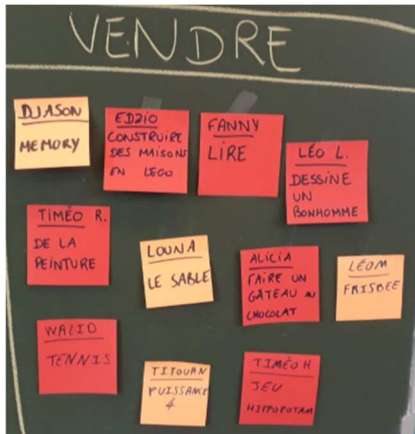 VENDRE
DJASON
MEMORY
EDZIO
CONSTRUIRE
DES MAISONS
EN LEGO
FANNY
LIRE
LÉO L.
DESSINE
UN
BONHOMME
TIMÉO R.
DE LA
PEINTURE
LOUNA
LE SABLE
ALICIA
FAIRE UN
GÂTEAU AU
CHOCOLAT
LÉOM
FRISBEE
WALID
TENNIS
TITOUAN
PUISSANCE
4
TIMÉO H
JEU
HIPPOPOTAM